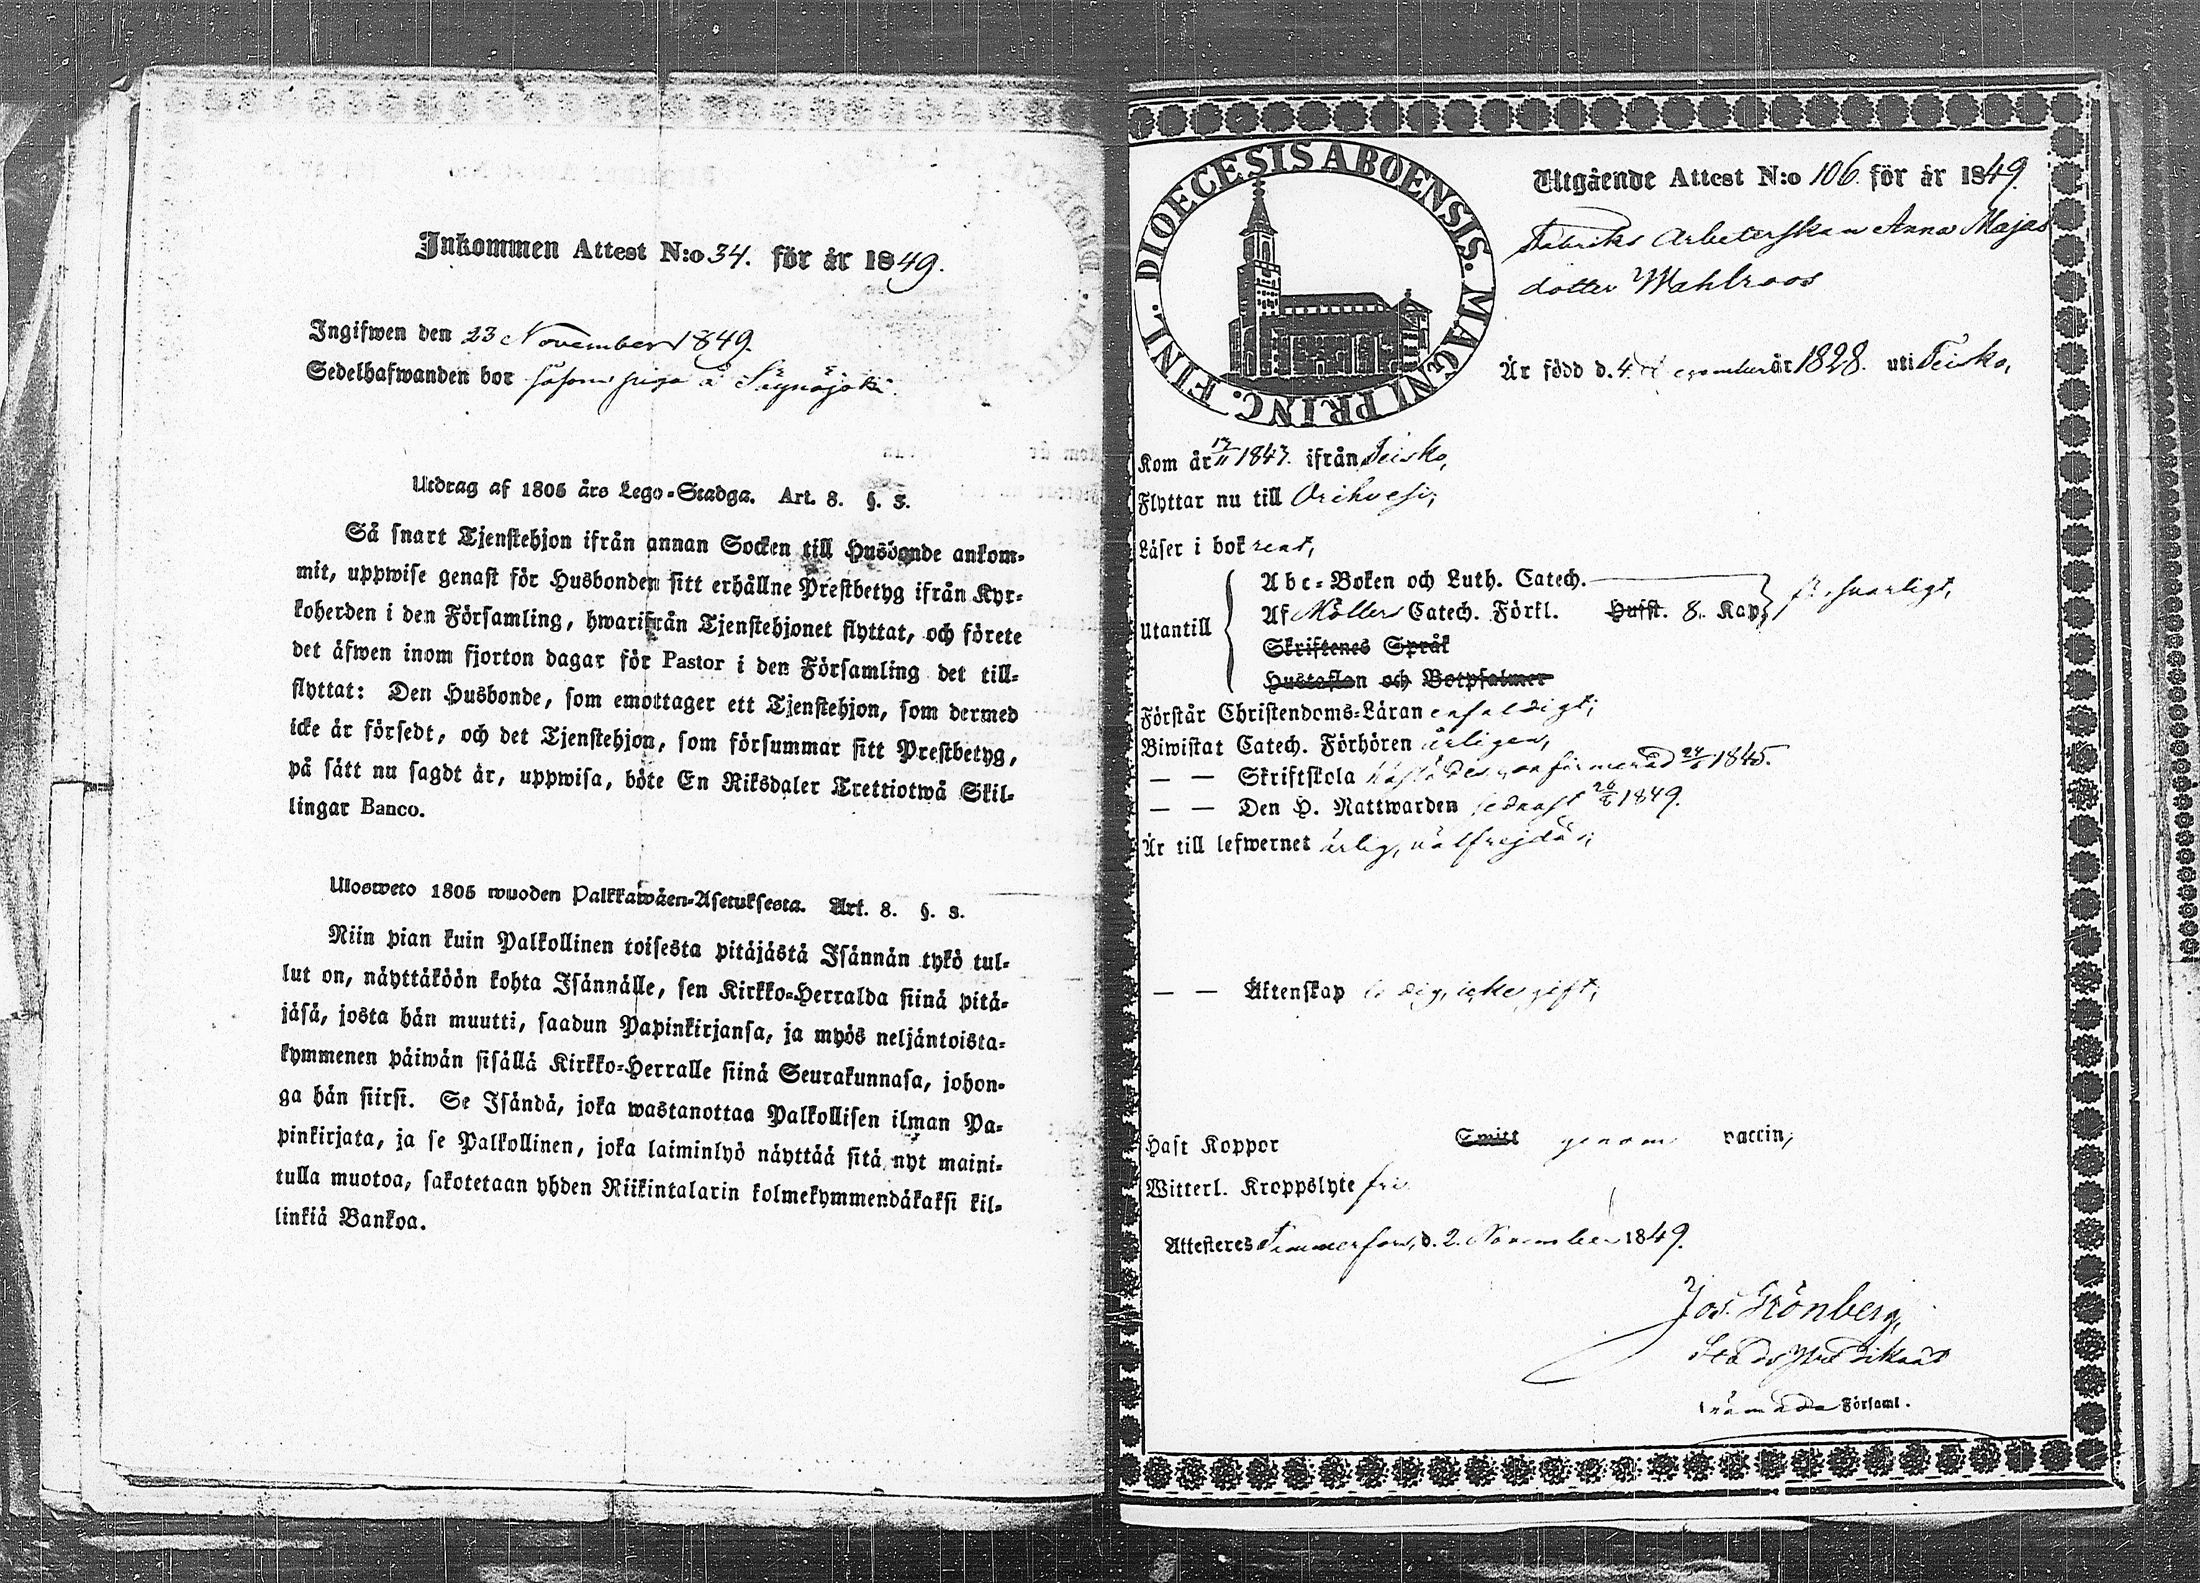 Inkommen Attest N:o 34. för år 1849.
Ingifwen den 23 November 1849.
Sedelhafwanden bor såsom piga å Säynäjoki.
Utdrag af 1805 års Lego-Stadga. Art. 8. §. 3.
Så snart Tjenstehjon ifrån annan Socken till Husbonde ankom-
mit, uppwise genast för Husbonden sitt erhållne Prestbetyg ifrån Kyr-
koherden i den Församling, hwarifrån Tjenstehjonet flyttat, och förete
det äfwen inom fjorton dagar för Pastor i den Församling det till-
flyttat: Den Husbonde, som emottager ett Tjenstehjon, som dermed
icke är försedt, och det Tjenstehjon, som försummar sitt Prestbetyg,
på sätt nu sagdt är, uppwisa, böte En Riksdaler Trettiotwå Skil-
lingar Banco.
Ulosweto 1805 wuoden Palkkawäen-Asetuksesta. Art. 8. §. 3.
Niin pian kuin Palkollinen toisesta pitäjästä Isännän tykö tul-
lut on, näyttäköön kohta Isännälle, sen Kirkko-Herralda siinä pitä-
jäsä, josta hän muutti, saadun Papinkirjansa, ja myös neljäntoista-
kymmenen päiwän sisällä Kirkko-Herralle siinä Seurakunnasa, johon-
ga hän siirsi. Se Isändä, joka wastanottaa Palkollisen ilman Pa-
pinkirjata, ja se Palkollinen, joka laiminlyö näyttää sitä nyt maini-
tulla muotoa, sakotetaan yhden Riikintalarin kolmekymmendäkaksi kil-
linkiä Bankoa.
DIOECESIS ABOENSIS. MAGNI PRINC. FINL.
Utgående Attest N:o 106. för år 1849.
Fabriks Arbeterskan Anna Majas
dotter Wahlroos
Är född d. 4. December år 1828. uti Teisko,
Kom år 17/11 1847. ifrån Teisko,
Flyttar nu till Orihvesi;
Läser i bok rent,
Utantill
Abc-Boken och Luth. Catech.
Af Möllers Catech. Förkl. Husst. 8. Kap. försvarligt,
Skriftenes Språk
Hustaflan och Botpsalmer
Förstår Christendoms-Läran enfaldigt;
Biwistat Catech. Förhören årligen,
— — Skriftskola konfirmerad 24/6 1845.
— — Den H. Nattwarden sednast 26/8 1849.
Är till lefwernet ärlig, välfrejdad;
— — Äktenskap ledig, icke gift;
Haft Koppor Smitt genom vaccin;
Witterl. Kroppslyte fri.
Attesteres Tammerfors, d. 2. November 1849.
Jos. Grönberg,
Stads Predikant
Församl.